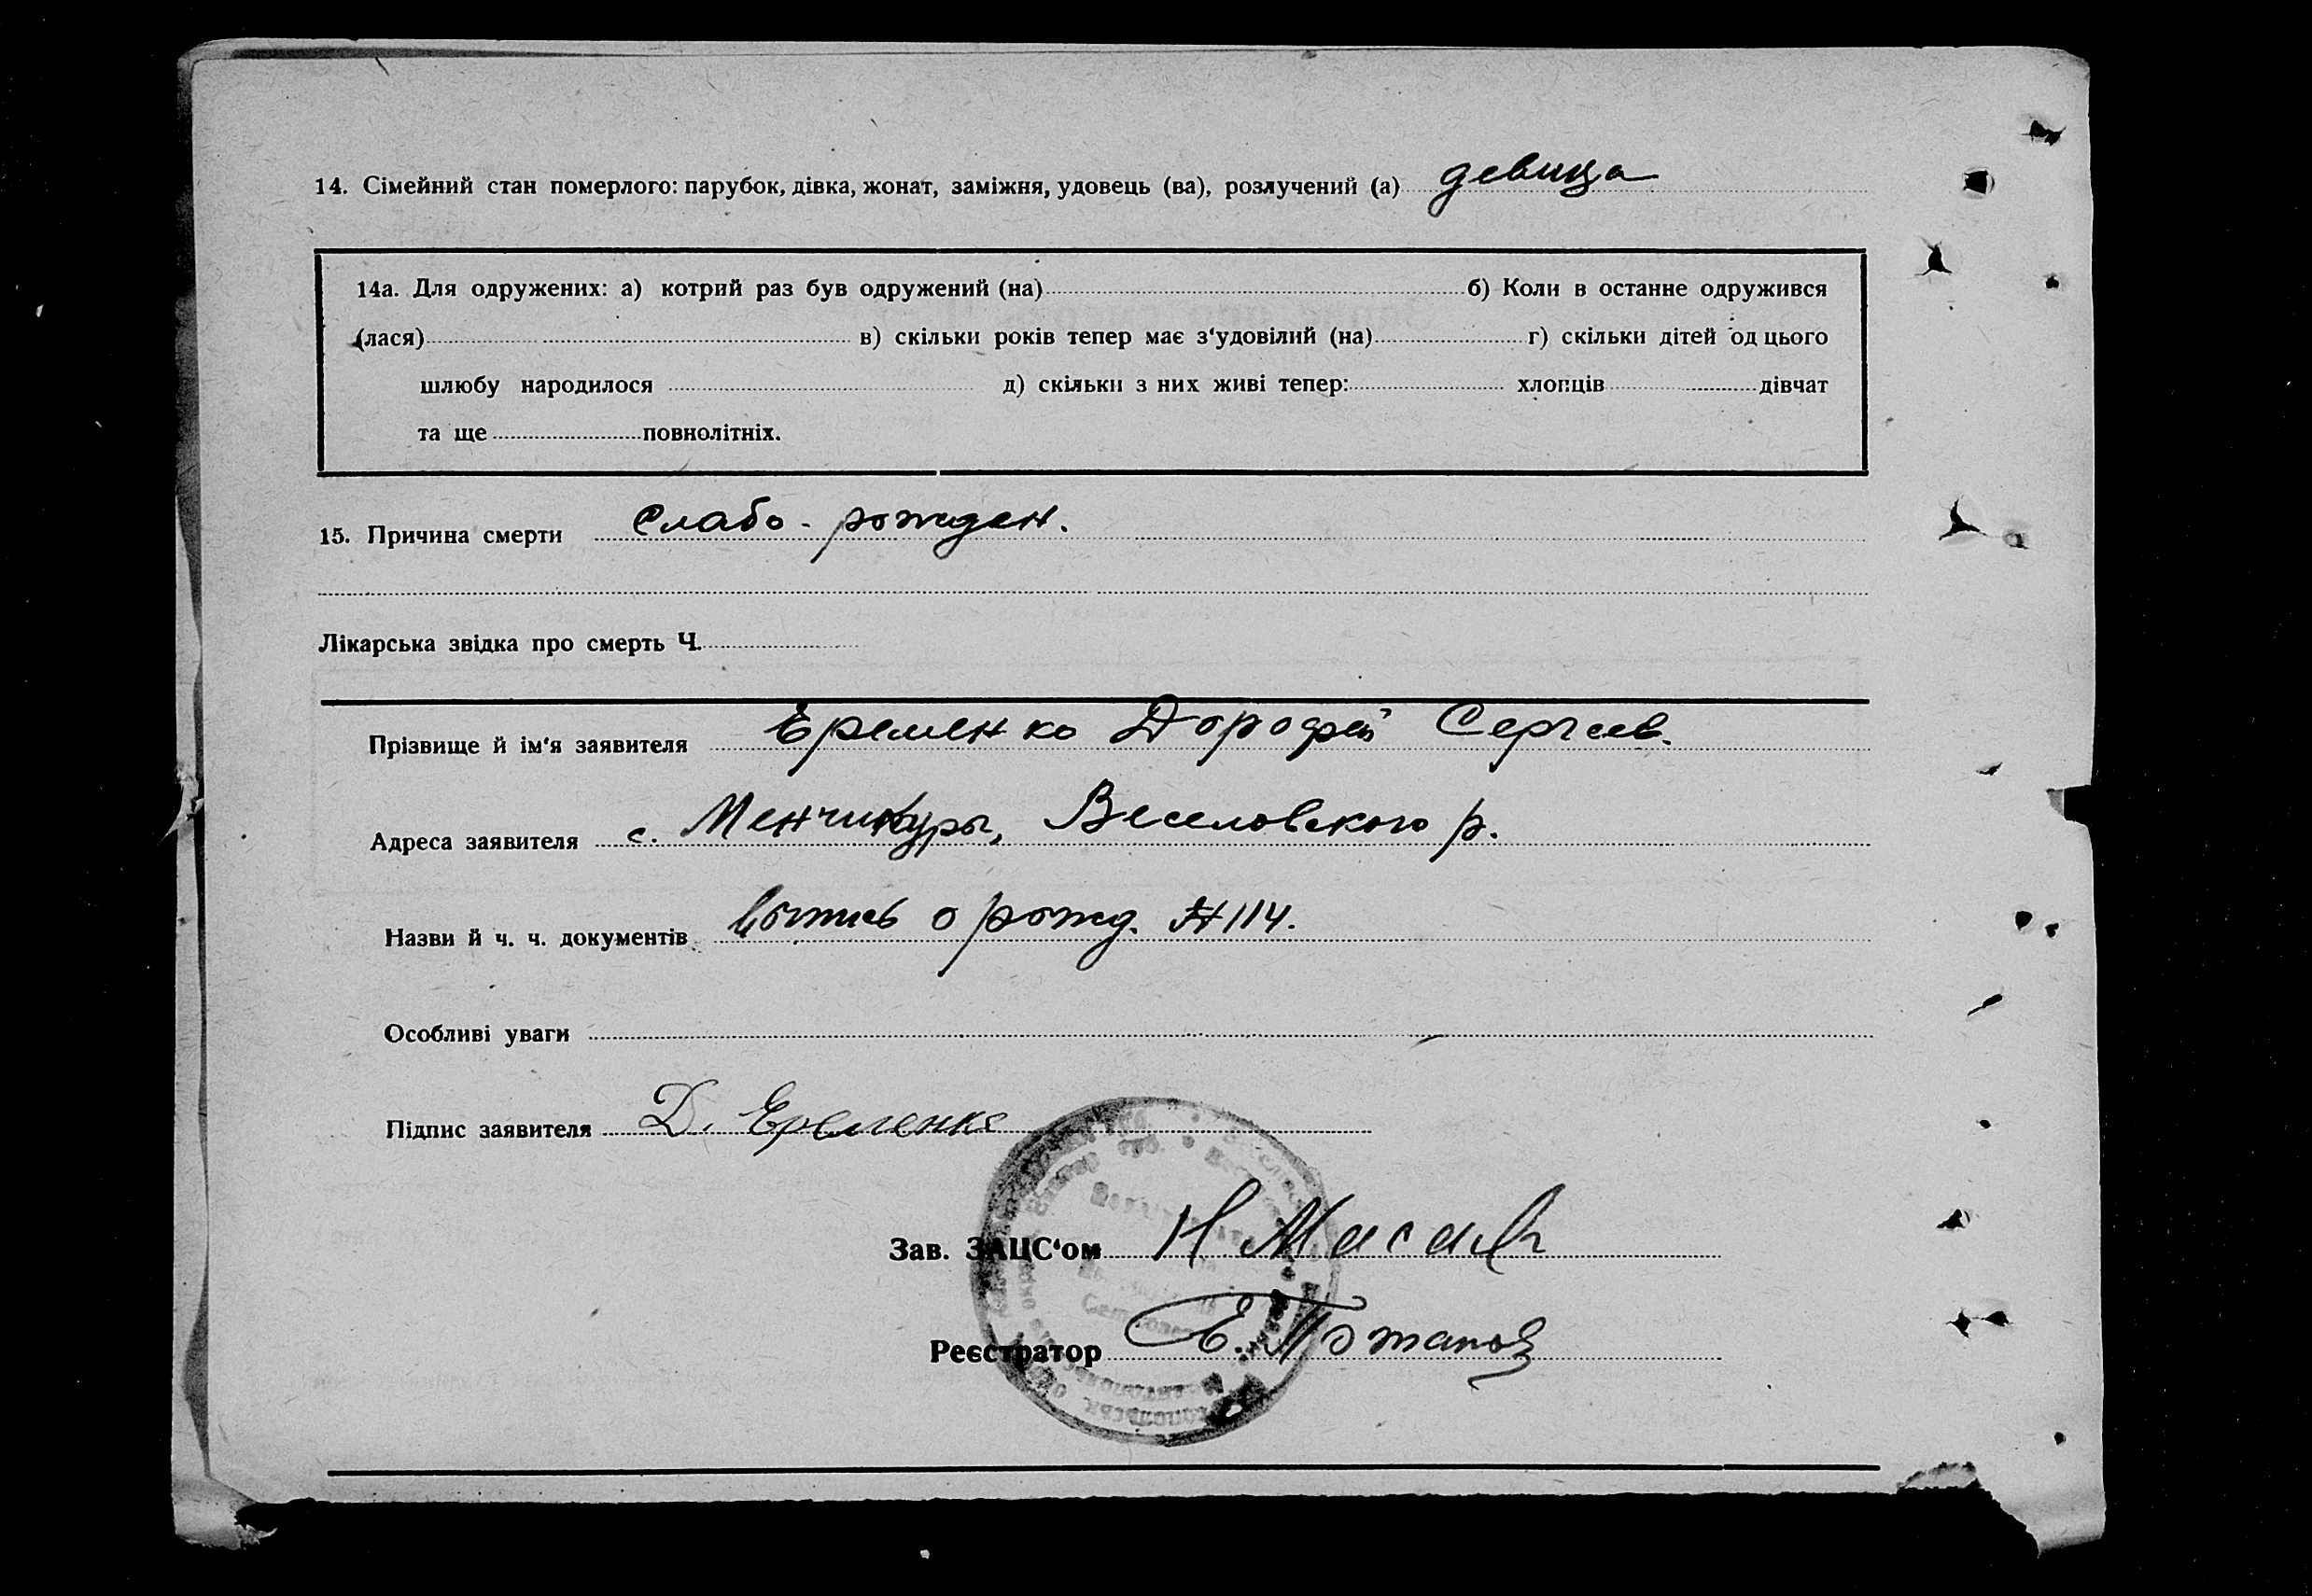 14. Сімейний стан померлого: парубок, дівка, жонат, заміжня, удовець (ва), розлучений (а) девица
14а. Для одружених: а) котрий раз був одружений (на) б) Коли в останне одружився
(лася) в) скільки років тепер має з‘удовілий (на) г) скільки дітей од цього
шлюбу народилося д) скільки з них живі тепер: хлопців дівчат
та ще повнолітніх.
15. Причина смерти Слабо-рожден.
Лікарська звідка про смерть Ч.
Прізвище й ім‘я заявителя Еременко Дорофей Сергеев.
Адреса заявителя с. Менчикуры, Веселовского р.
Назви й ч. ч. документів о рожд. №114.
Особливі уваги
Підпис заявителя Д. Еременко
Зав. ЗАЦС‘ом Н
Реєстратор Е. Потапов